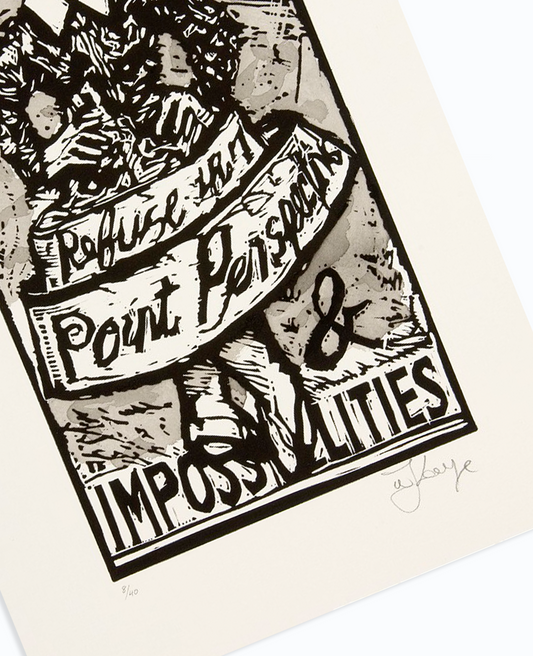 Refuse thr
Point Perspective
&
IMPOSS LITIES
8/40